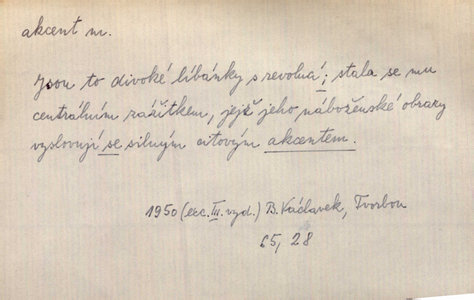 akcent m.
Jsou to divoké líbánky s revolucí; stala se mu
centrálním zážitkem, jejž jeho náboženské obrazy
vyslovují se silným citovým akcentem.
1950 (rec. III. vyd.) B. Václavek, Tvorbou
65, 28